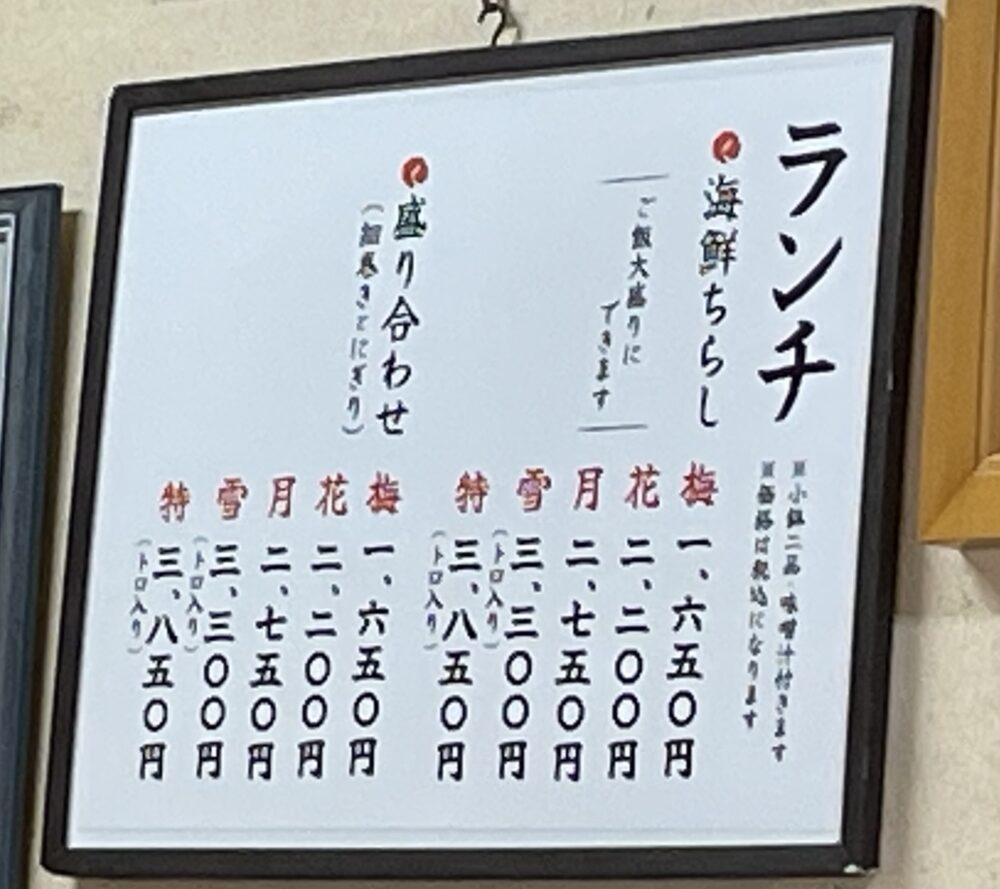 ランチ
※小鉢二品・味噌汁付きます
※価格は税込になります
海鮮ちらし
ご飯大盛りに
できます
梅 一、六五〇円
花 二、二〇〇円
月 二、七五〇円
雪 三、三〇〇円
(トロ入り)
特 三、八五〇円
(トロ入り)
盛り合わせ
(細巻きとにぎり)
梅 一、六五〇円
花 二、二〇〇円
月 二、七五〇円
雪 三、三〇〇円
(トロ入り)
特 三、八五〇円
(トロ入り)